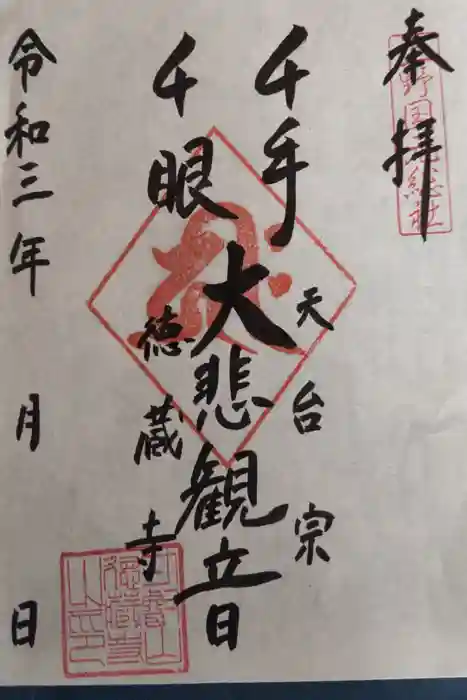 奉拝
千手
千眼
大悲観立日
天台宗
徳蔵寺
令和三年 月 日